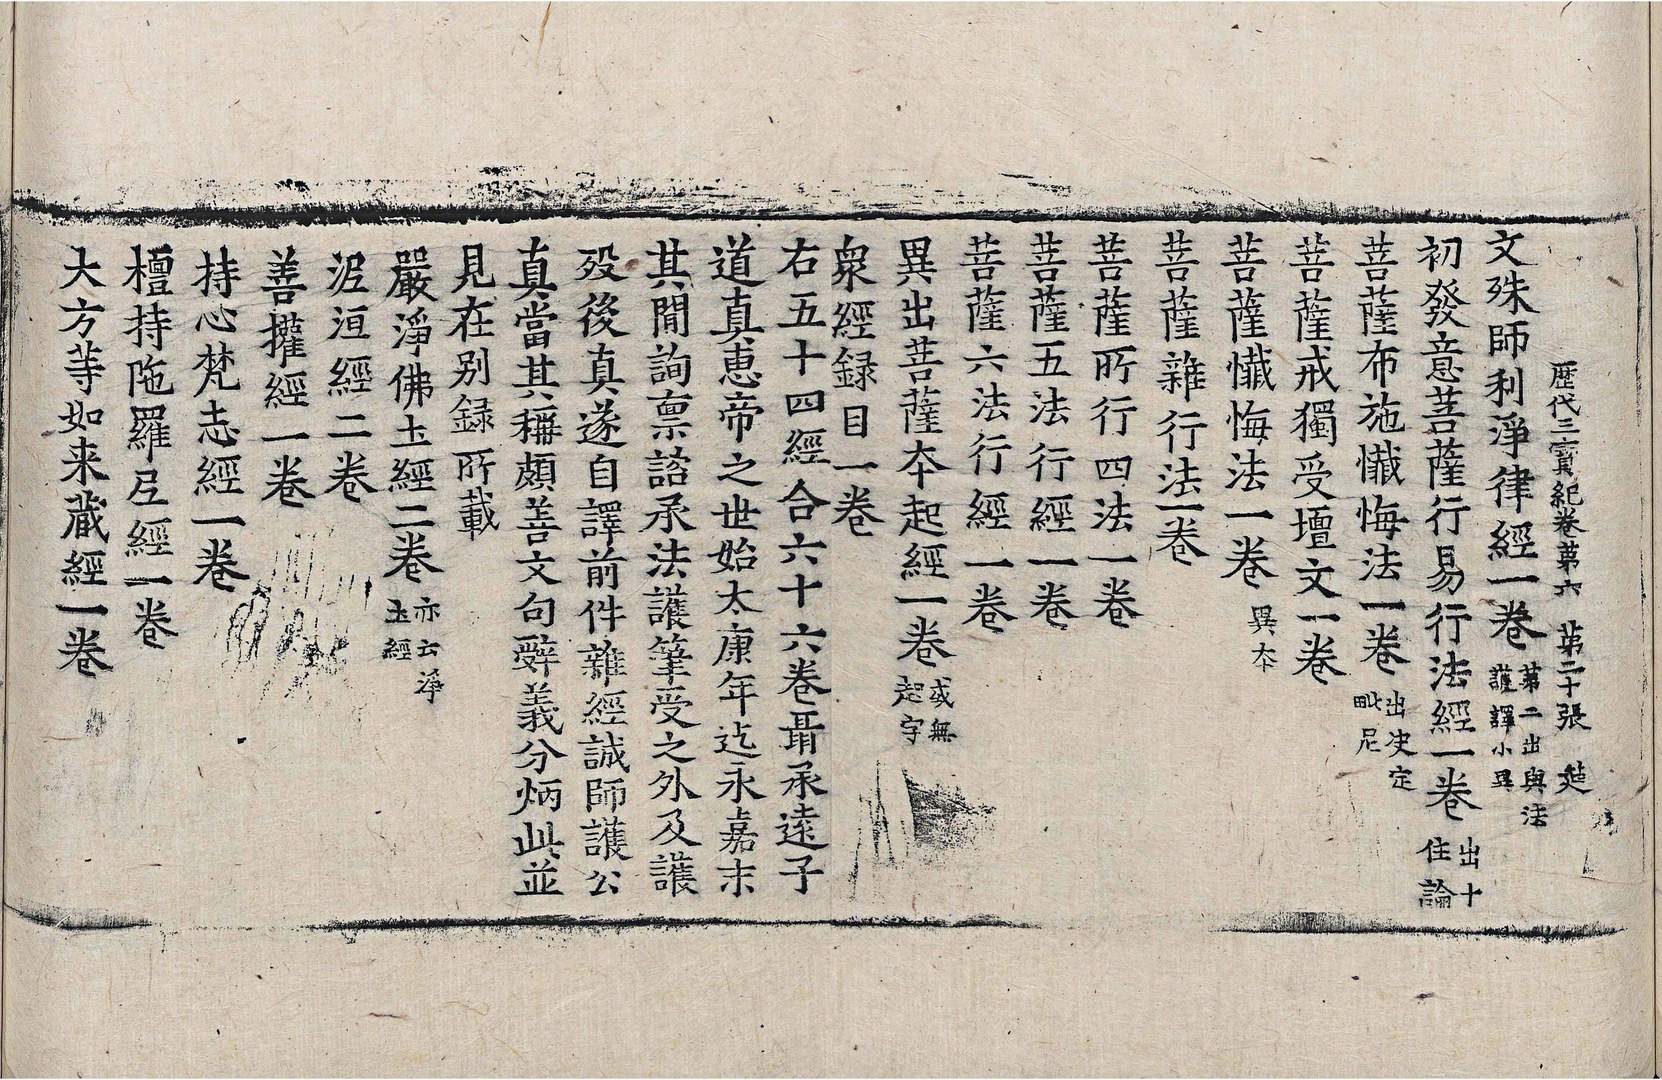 歴代三寶紀卷第六 第二十張 楚
文殊師利淨律經一卷 第二出與法護譯小異
初發意菩薩行易行法經一卷 出十住論
菩薩布施懺悔法一卷 出决定毗尼
菩薩戒獨受壇文一卷
菩薩懺悔法一卷 異夲
菩薩雜行法一卷
菩薩所行四法一卷
菩薩五法行經一卷
菩薩六法行經一卷
異出菩薩夲起經一卷 或無起字
衆經録目一卷
右五十四經合六十六卷聶承遠子
道真惠帝之世始太康年迄永嘉末
其間詢禀諮承法護筆受之外及護
殁後真遂自譯前件雜經誠師護公
真當其稱頗善文句辭義分炳此並
見在别録所載
嚴淨佛土經二卷 亦云淨土經
泥洹經二卷
善權經一卷
持心梵志經一卷
檀持陁羅尼經一卷
大方等如来藏經一卷